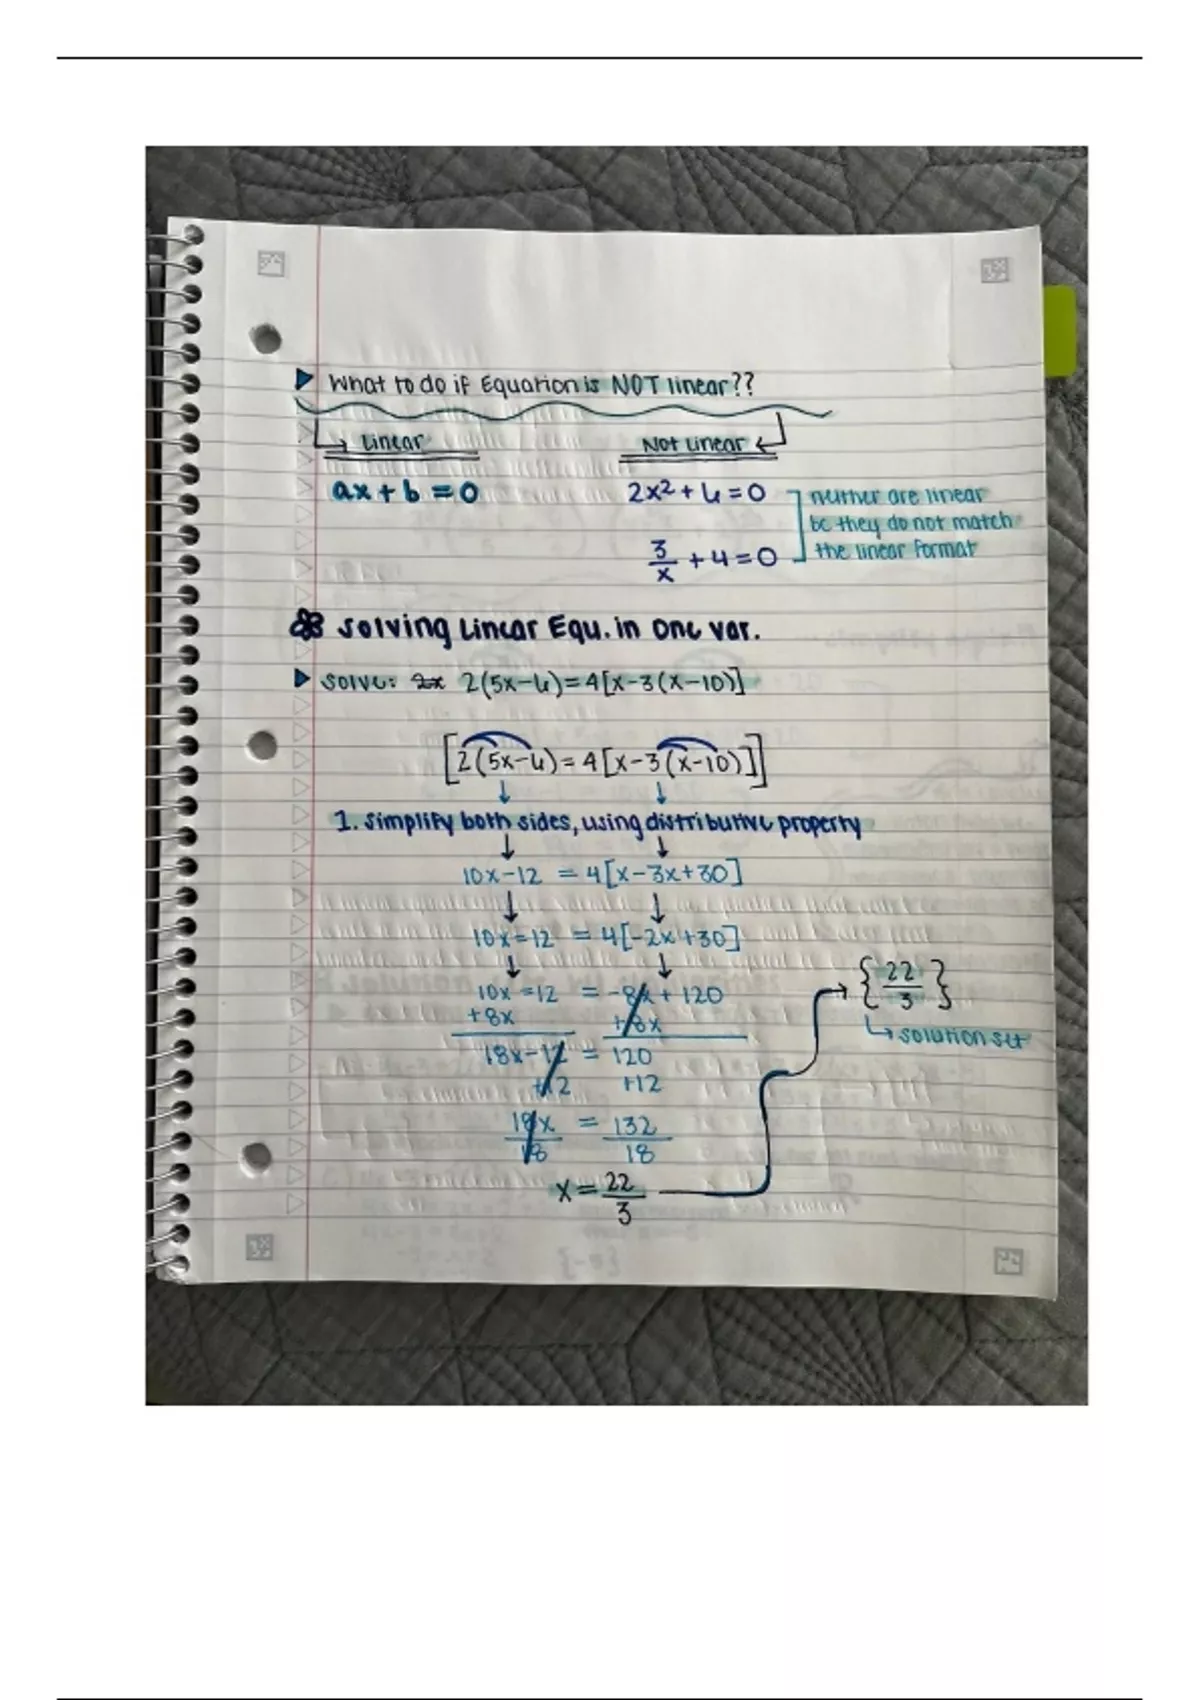 What to do if Equation is NOT linear??
Linear Not Linear
ax + b = 0 2x² + 6 = 0 neither are linear
bc they do not match
3/x + 4 = 0 the linear format
Solving Linear Equ. in One var.
Solve: 2x 2(5x-6)=4[x-3(x-10)]
[2(5x-6)=4[x-3(x-10)]]
↓ ↓
1. Simplify both sides, using distributive property
↓ ↓
10x-12 = 4[x-3x+30]
↓ ↓
10x-12 = 4[-2x+30]
↓ ↓
10x-12 = -8x + 120 → {22/3}
+8x +8x ↳ solution set
18x-12 = 120
+12 +12
18x/18 = 132/18
x = 22/3